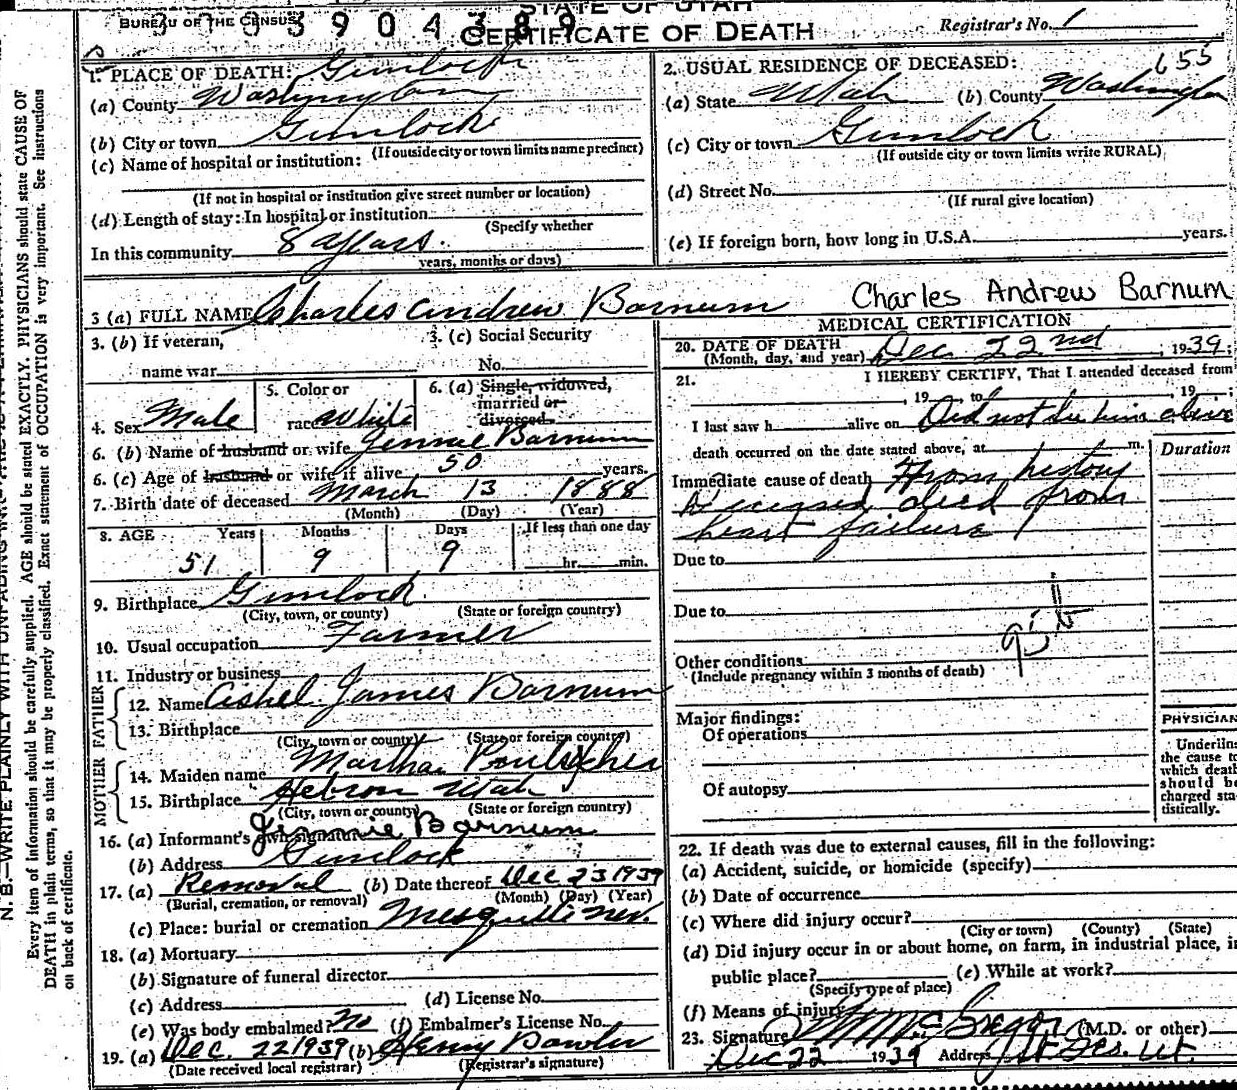 STATE OF UTAH
BUREAU OF THE CENSUS
CERTIFICATE OF DEATH
Registrar's No. 1
1. PLACE OF DEATH: Gunlock
(a) County Washington
(b) City or town Gunlock
(If outside city or town limits name precinct)
(c) Name of hospital or institution:
(If not in hospital or institution give street number or location)
(d) Length of stay: In hospital or institution
(Specify whether
In this community 8 years.
years, months or days)
2. USUAL RESIDENCE OF DECEASED: 655
(a) State Utah (b) County Washington
(c) City or town Gunlock
(If outside city or town limits write RURAL)
(d) Street No.
(If rural give location)
(e) If foreign born, how long in U.S.A. years.
3 (a) FULL NAME Charles Andrew Barnum Charles Andrew Barnum
3. (b) If veteran,
name war
3. (c) Social Security
No.
4. Sex Male
5. Color or
race White
6. (a) Single, widowed,
married or
divorced
6. (b) Name of husband or wife Jennie Barnum
6. (c) Age of husband or wife if alive 50 years.
7. Birth date of deceased March 13 1888
(Month) (Day) (Year)
8. AGE Years Months Days If less than one day
51 9 9 hr. min.
9. Birthplace Gunlock
(City, town, or county) (State or foreign country)
10. Usual occupation Farmer
11. Industry or business
FATHER
12. Name Ashel James Barnum
13. Birthplace
(City, town or county) (State or foreign country)
MOTHER
14. Maiden name Martha
15. Birthplace Hebron Utah
(City, town or county) (State or foreign country)
16. (a) Informant's own signature Jennie Barnum
(b) Address Gunlock
17. (a) Removal (b) Date thereof Dec 23 1939
(Burial, cremation, or removal) (Month) (Day) (Year)
(c) Place: burial or cremation Mesquite Nev.
18. (a) Mortuary
(b) Signature of funeral director
(c) Address (d) License No.
(e) Was body embalmed? No (f) Embalmer's License No.
19. (a) Dec. 22 1939 (b) Henry Bowler
(Date received local registrar) (Registrar's signature)
MEDICAL CERTIFICATION
20. DATE OF DEATH
(Month, day, and year) Dec 22nd, 1939;
21. I HEREBY CERTIFY, That I attended deceased from
, 19 , to , 19 ;
I last saw h alive on Did not see him alive
death occurred on the date stated above, at m.
Duration
Immediate cause of death From history
Deceased died from
heart failure
Due to
Due to
95b
Other conditions
(Include pregnancy within 3 months of death)
Major findings:
Of operations
Of autopsy
PHYSICIAN
Underline
the cause to
which death
should be
charged sta-
tistically.
22. If death was due to external causes, fill in the following:
(a) Accident, suicide, or homicide (specify)
(b) Date of occurrence
(c) Where did injury occur?
(City or town) (County) (State)
(d) Did injury occur in or about home, on farm, in industrial place, in
public place? (e) While at work?
(Specify type of place)
(f) Means of injury
23. Signature McGregor (M.D. or other)
Dec 22 1939 Address St. Geo. Ut.
Every item of information should be carefully supplied. AGE should be stated EXACTLY. PHYSICIANS should state CAUSE OF
DEATH in plain terms, so that it may be properly classified. Exact statement of OCCUPATION is very important. See instructions
on back of certificate.